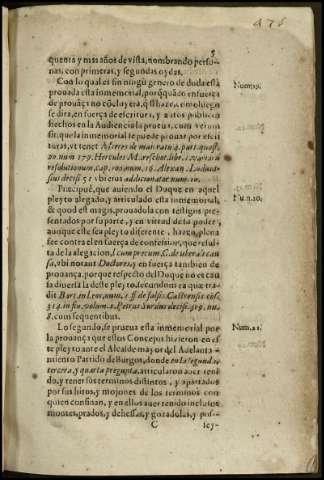 476
5
quenta y mas años de vista, nombrando perso-
nas, con primeras, y segundas oydas.
Con lo qual es sin ningũ genero de duda està
prouada esta inmemorial, porq̃ quãdo en fuerça
de prouãça no cõcluyera, q̃ si haze,
Num. 19.
dira, en fuerça de escritura, y autos publicos
hechos en la Audiencia lo prueua, cum verum
sit, que la inmemorial se puede prouar por escri-
turas, vt tenet
num. 179. Hercules Marescot. libr. 1. variar.
resolutionum, cap. num. 16. Alexan. Ludoui-
sius decis. & ibi eius addictionator, num. 10.
Præcipuè, que auiendo el Duque en aquel
Num. 20.
pleyto alegado, y articulado esta inmemorial,
& quod est magis, prouadola con testigos pre-
sentados por su parte, y en virtud de su poder,
aunque este sea pleyto diferente, hazen plena
fee contra el en fuerça de confession, que resul-
ta de la alegacion, l. cum precum, C. de liberali cau-
sa, vbi notant Doctores, y en fuerça tambien de
prouança, porque respecto del Duque no es cau
sa diuersa la deste pleyto, secundum ea quæ tradit
dit in leg. num. ff. de falsis, Castrensis cons.
314. in fin. volum. 2. Petrus Surdus decis. 419. nu.
8. cum sequentibus.
Lo segundo, se prueua esta inmemorial por
Num. 21.
la prouança que ellos Concejos hizieron en es-
te pleyto ante el Alcalde mayor del Adelanta-
miento Partido de Burgos, donde en la segunda,
tercera, y quarta pregunta, articularon auer teni-
do, y tener sus terminos distintos, y apartados
por sus hitos, y mojones de los terminos con
quien confinan, y en ellos auer tenido inclusos
montes, prados, y dehessas, y gozadolas, y pos-
C
sey-